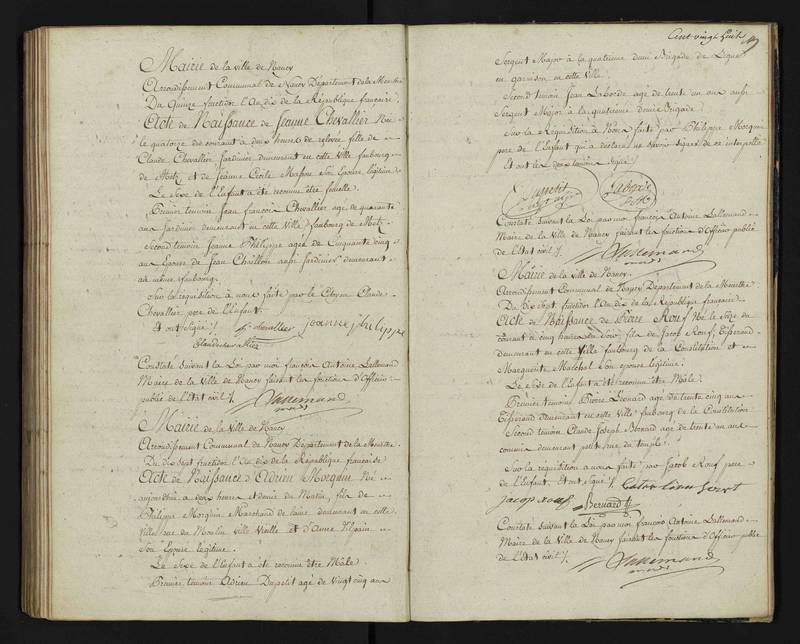 Mairie de la ville de Nancy
Arrondissement Communal de Nancy Département de la Meurthe
Du Quinze fructidor l'an dix de la République française
Acte de Naissance de Jeanne Chevallier Née
le quatorze du courant à deux heures de relevée fille de
Claude Chevallier Jardinier demeurant en cette Ville faubourg
de Metz et de Jeanne Cécile Masson Son Epouse légitime
Le Sexe de l'Enfant a été reconnu être femelle.
Premier temoin Jean françois Chevallier agé de quarante
ans Jardinier demeurant en cette Ville faubourg de Metz
Second temoin Jeanne Philippe agée de Cinquante cinq
ans femme de Jean Chaillon aussi Jardinier demeurant
au même faubourg.
Sur la requisition à nous faite par le Citoyen Claude
Chevallier pere de l'Enfant.
Et ont signé
f chevallier jeanne philippe
Claude chevallier
Constaté suivant la Loi par moi françois Antoine Lallemand
Maire de la Ville de Nancy faisant les fonctions d'Officier
public de l'Etat civil
Lallemand
Mairie de la Ville de Nancy
Arrondissement Communal de Nancy Département de la Meurthe
Du dix sept fructidor l'an dix de la République française
Acte de Naissance d'Adrien Morquin Né
aujourd'hui à deux heures et demie du Matin, fils de
Philippe Morquin Marchand de laine demeurant en cette
Ville rue du Moulin ville Vieille et d'Anne
Son Epouse légitime.
Le Sexe de l'Enfant a été reconnu être Mâle.
Premier temoin Adrien Dupetit agé de Vingt cinq ans
Cent vingt huit
Sergent Major à la quatrieme demi Brigade de Ligne
en garnison en cette Ville
Second temoin Jean Laborde agé de trente un ans aussi
Sergent Major à la quatrieme demie Brigade
Sur la Requisition à Nous faite par Philippe Morquin
pere de l'Enfant qui a déclaré ne savoir signer de ce interpellé
Et ont les deux témoins signé
Laborde
Constaté suivant la Loi par moi françois Antoine Lallemand
Maire de la Ville de Nancy faisant les fonctions d'Officier public
de l'Etat civil
Lallemand
Mairie de la Ville de Nancy
Arrondissement Communal de Nancy Département de la Meurthe
Du dix Sept fructidor l'An dix de la République française
Acte de Naissance de Pierre Rouf Né le Seize du
courant à cinq heures du Soir fils de Jacob Rouf, Tisserand
demeurant en cette Ville faubourg de la Constitution et
Marguerite Malchal Son épouse légitime.
Le Sexe de l'Enfant a été reconnu être Mâle.
Premier temoin Pierre Lionard agé de trente cinq ans
Tisserand demeurant en cette Ville faubourg de la Constitution
Second temoin Claude Joseph Bernard agé de trente un ans
commis demeurant petite rue du temple.
Sur la requisition à nous faite par Jacob Rouf pere
de l'Enfant. Et ont signé
jacop rouf Bernard
Constaté suivant la Loi par moi françois Antoine Lallemand
Maire de la Ville de Nancy faisant les fonctions d'Officier public
de l'Etat civil
Lallemand